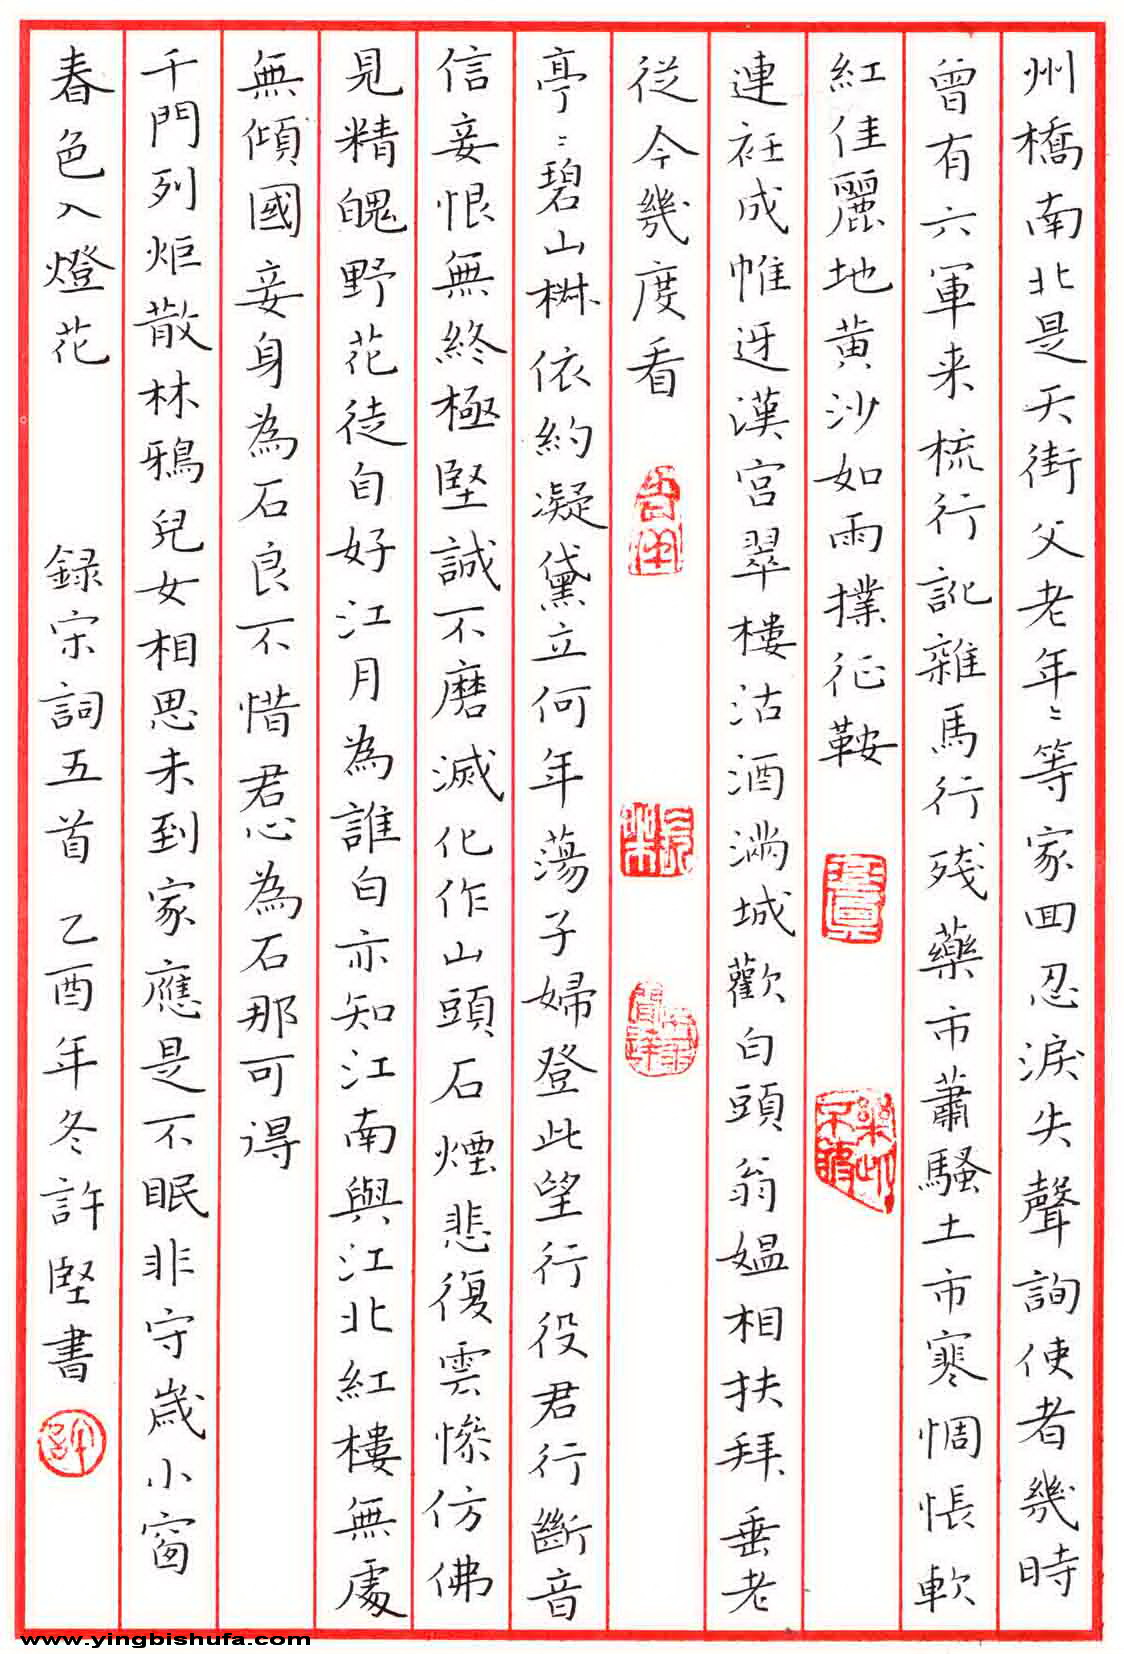 州橋南北是天街父老年〻等家回忍淚失聲詢使者幾時
曾有六軍来梳行訛雜馬行残藥市蕭騷土市寒惆悵軟
紅佳麗地黄沙如雨撲征鞍
連衽成帷迓漢宫翠樓沽酒滿城歡白頭翁媪相扶拜垂老
從今幾度看
亭〻碧山椒依約凝黛立何年蕩子婦登此望行役君行斷音
信妾恨無終極堅誠不磨滅化作山頭石煙悲復雲慘仿佛
見精魄野花徒自好江月為誰白亦知江南與江北紅樓無處
無傾國妾身為石良不惜君心為石那可得
千門列炬散林鴉兒女相思未到家應是不眠非守歲小窗
春色入燈花 録宋詞五首 乙酉年冬許堅書
www.yingbishufa.com